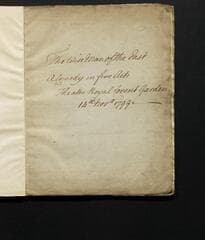 The Wise Man of the East
A Comedy in five Acts
Theatre Royal Covent Garden
14th Novr 1799